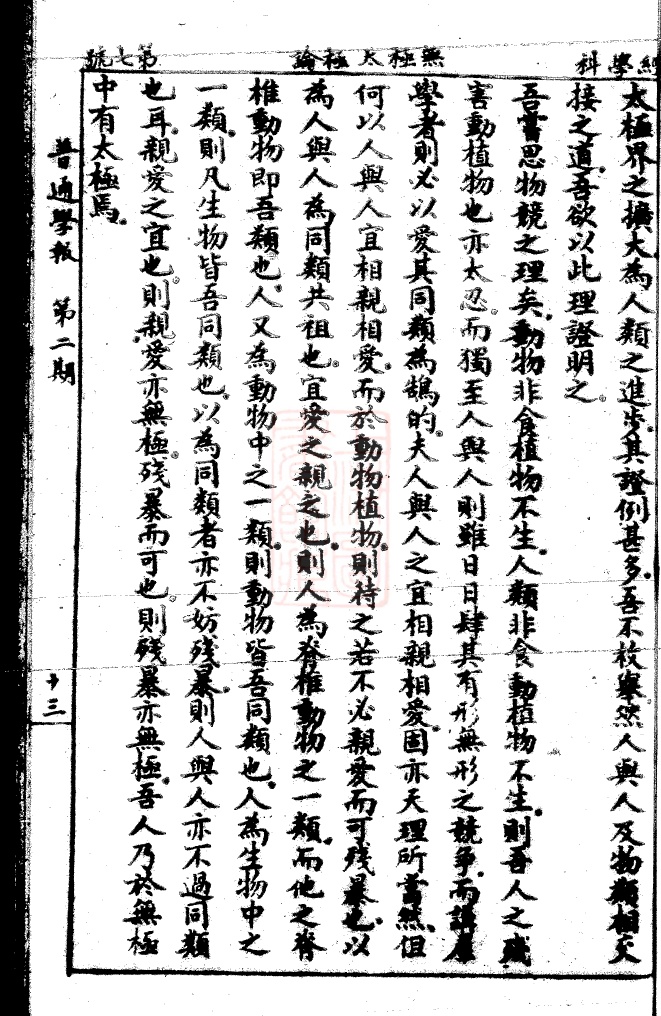 經學科
無極太極論
第七號
太極界之擴大為人類之進步其證例甚多吾不枚舉然人與人及物類相交
接之道吾欲以此理證明之
吾嘗思物競之理矣動物非食植物不生人類非食動植物不生則吾人之殘
害動植物也亦太忍而獨至人與人則雖日日肆其有形無形之競爭而講羣
學者則必以愛其同類為鵠的夫人與人之宜相親相愛固亦天理所當然但
何以人與人宜相親相愛而於動物植物則待之若不必親愛而可殘暴也以
為人與人為同類共祖也宜愛之親之也則人為脊椎動物之一類而他之脊
椎動物即吾類也人又為動物中之一類則動物皆吾同類也人為生物中之
一類則凡生物皆吾同類也以為同類者亦不妨殘暴則人與人亦不過同類
也耳親愛之宜也則親愛亦無極殘暴而可也則殘暴亦無極吾人乃於無極
中有太極焉
普通學報 第二期
十三